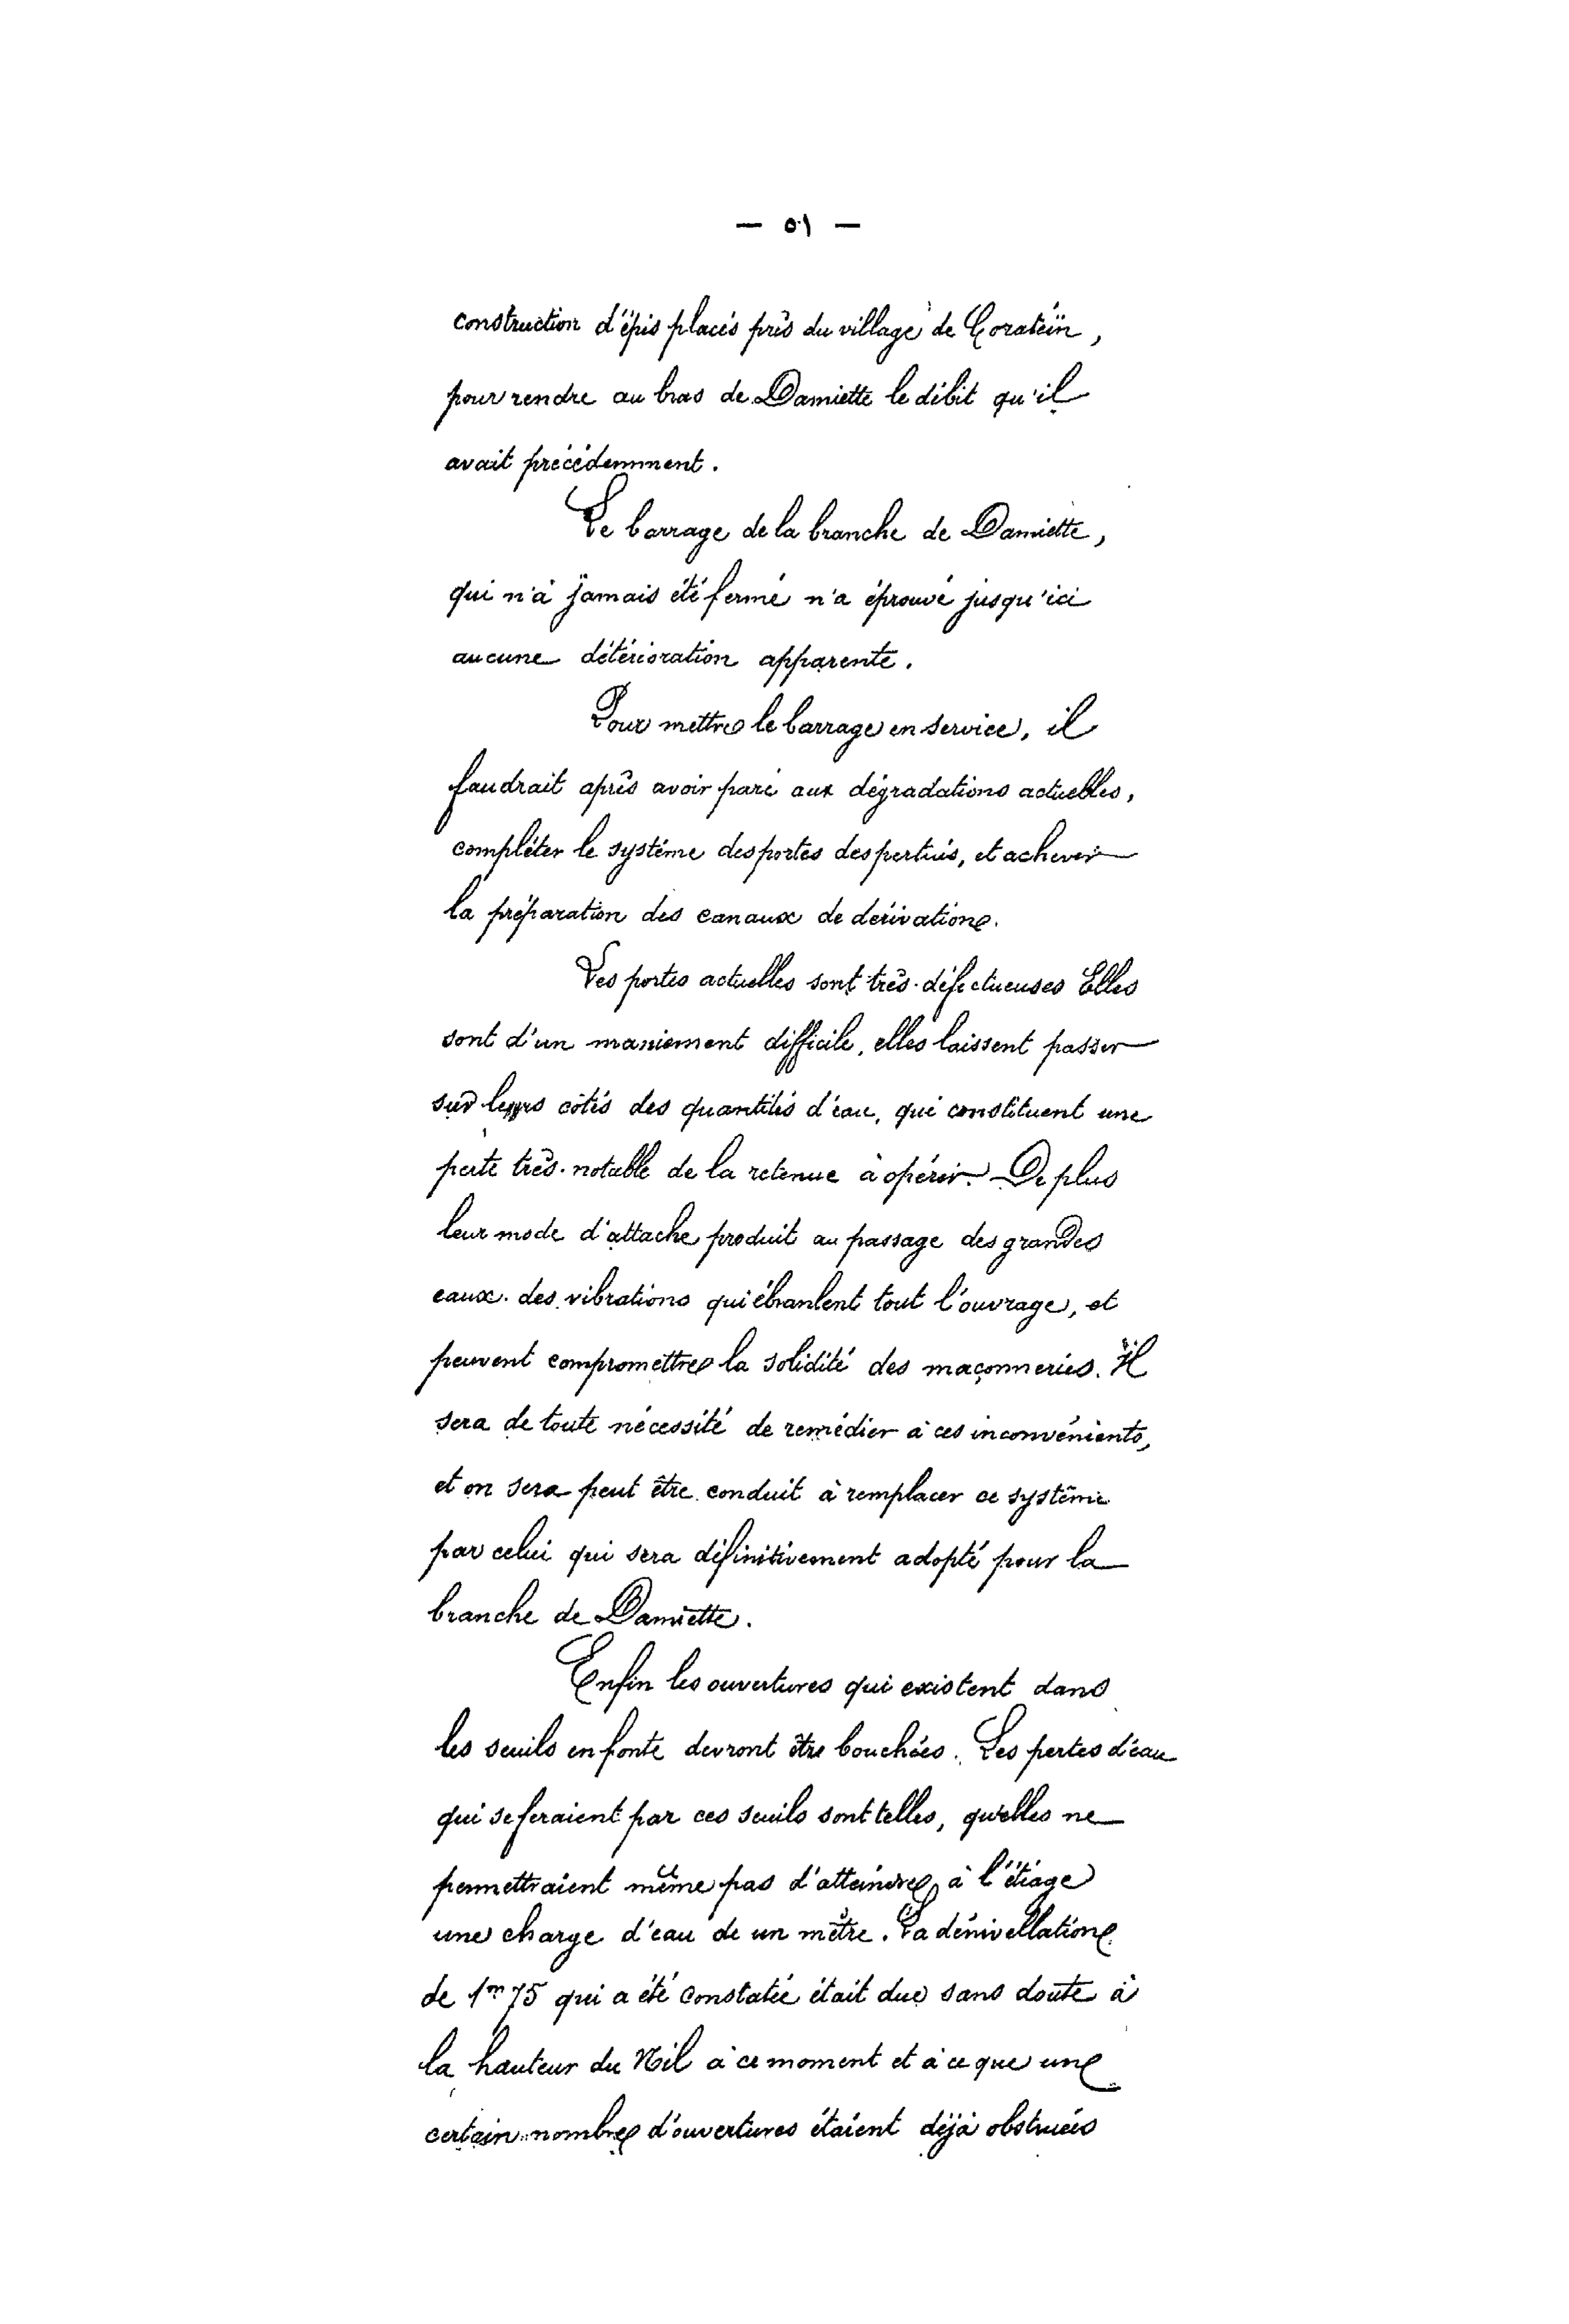 — ٥١ —
construction d'épis placés près du village de Coratéïn,
pour rendre au bras de Damiette le débit qu'il
avait précédemment.
Le barrage de la branche de Damiette,
qui n'a jamais été fermé n'a éprouvé jusqu'ici
aucune détérioration apparente.
Pour mettre le barrage en service, il
faudrait après avoir paré aux dégradations actuelles,
compléter le système des portes des pertuis, et achever
la préparation des canaux de dérivation.
Les portes actuelles sont très-défectueuses Elles
sont d'un maniement difficile, elles laissent passer
sur leurs côtés des quantités d'eau, qui constituent une
perte très-notable de la retenue à opérer. De plus
leur mode d'attache produit au passage des grandes
eaux des vibrations qui ébranlent tout l'ouvrage, et
peuvent compromettre la solidité des maçonneries. Il
sera de toute nécessité de remédier à ces inconvénients,
et on sera peut être conduit à remplacer ce système
par celui qui sera définitivement adopté pour la
branche de Damiette.
Enfin les ouvertures qui existent dans
les seuils en fonte devront être bouchées. Les pertes d'eau
qui se feraient par ces seuils sont telles, qu'elles ne
permettraient même pas d'atteindre à l'étiage
une charge d'eau de un mètre. La dénivellation
de 1m 75 qui a été constatée était due sans doute à
la hauteur du Nil à ce moment et à ce que un
certain nombre d'ouvertures étaient déjà obstruées